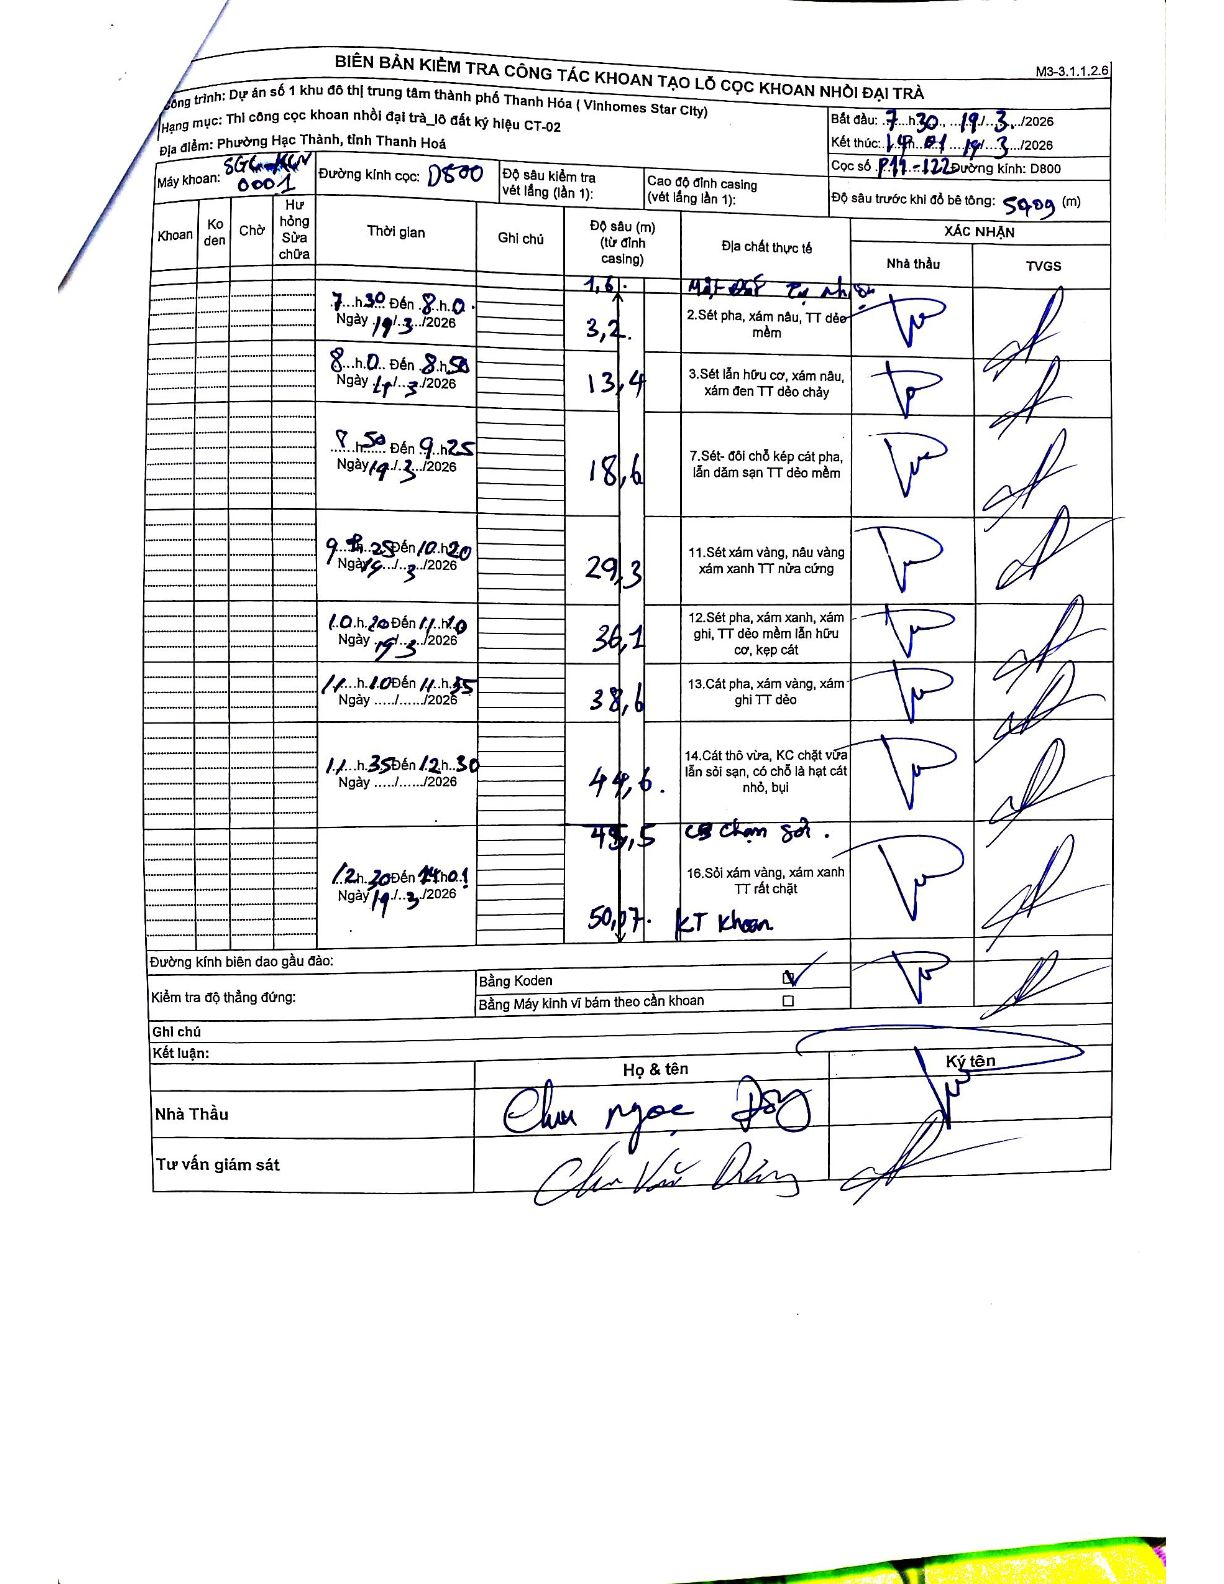 M3-3.1.1.2.6
BIÊN BẢN KIỂM TRA CÔNG TÁC KHOAN TẠO LỖ CỌC KHOAN NHỒI ĐẠI TRÀ
Công trình: Dự án số 1 khu đô thị trung tâm thành phố Thanh Hóa ( Vinhomes Star City)
Hạng mục: Thi công cọc khoan nhồi đại trà_lô đất ký hiệu CT-02
Địa điểm: Phường Hạc Thành, tỉnh Thanh Hoá
Bắt đầu: 7h30, 19/3/2026
Kết thúc: 14h01 19/3/2026
Cọc số P11-122 Đường kính: D800
Độ sâu trước khi đổ bê tông: (m)
Máy khoan: 0001
Đường kính cọc: D800
Độ sâu kiểm tra vét lắng (lần 1):
Cao độ đỉnh casing (vét lắng lần 1):
Khoan
Ko den
Chờ
Hư hỏng Sửa chữa
Thời gian
Ghi chú
Độ sâu (m) (từ đỉnh casing)
Địa chất thực tế
XÁC NHẬN
Nhà thầu
TVGS
1,6. Mặt Đất Tự nhiên
7h30 Đến 8h0
Ngày 19/3/2026
3,2.
2.Sét pha, xám nâu, TT dẻo
mềm
8h0 Đến 8h50
Ngày 19/3/2026
13,4
3.Sét lẫn hữu cơ, xám nâu,
xám đen TT dẻo chảy
8h50 Đến 9h25
Ngày 19/3/2026
18,6
7.Sét- đôi chỗ kẹp cát pha,
lẫn dăm sạn TT dẻo mềm
9h25 Đến 10h20
Ngày 19/3/2026
29,3
11.Sét xám vàng, nâu vàng
xám xanh TT nửa cứng
10h20 Đến 11h10
Ngày 19/3/2026
36,1
12.Sét pha, xám xanh, xám
ghi, TT dẻo mềm lẫn hữu
cơ, kẹp cát
11h10 Đến 11h35
Ngày ...../....../2026
38,6
13.Cát pha, xám vàng, xám
ghi TT dẻo
11h35 Đến 12h30
Ngày ...../....../2026
44,6.
14.Cát thô vừa, KC chặt vừa
lẫn sỏi sạn, có chỗ là hạt cát
nhỏ, bụi
45,5 CĐ chạm sỏi.
12h30 Đến 14h01
Ngày 19/3/2026
16.Sỏi xám vàng, xám xanh
TT rất chặt
50,07. KT khoan
Đường kính biên dao gầu đào:
Kiểm tra độ thẳng đứng:
Bằng Koden
Bằng Máy kinh vĩ bám theo cần khoan
Ghi chú
Kết luận:
Họ & tên
Ký tên
Nhà Thầu
Chu Ngọc
Tư vấn giám sát
Chu Văn